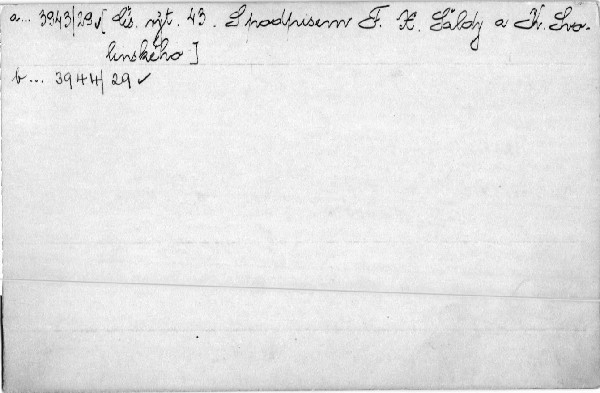 a... 3943/29✓[Čís. výt. 43. S podpisem F. X. Šaldy a K. Svo-
linského]
b... 3944/29 ✓